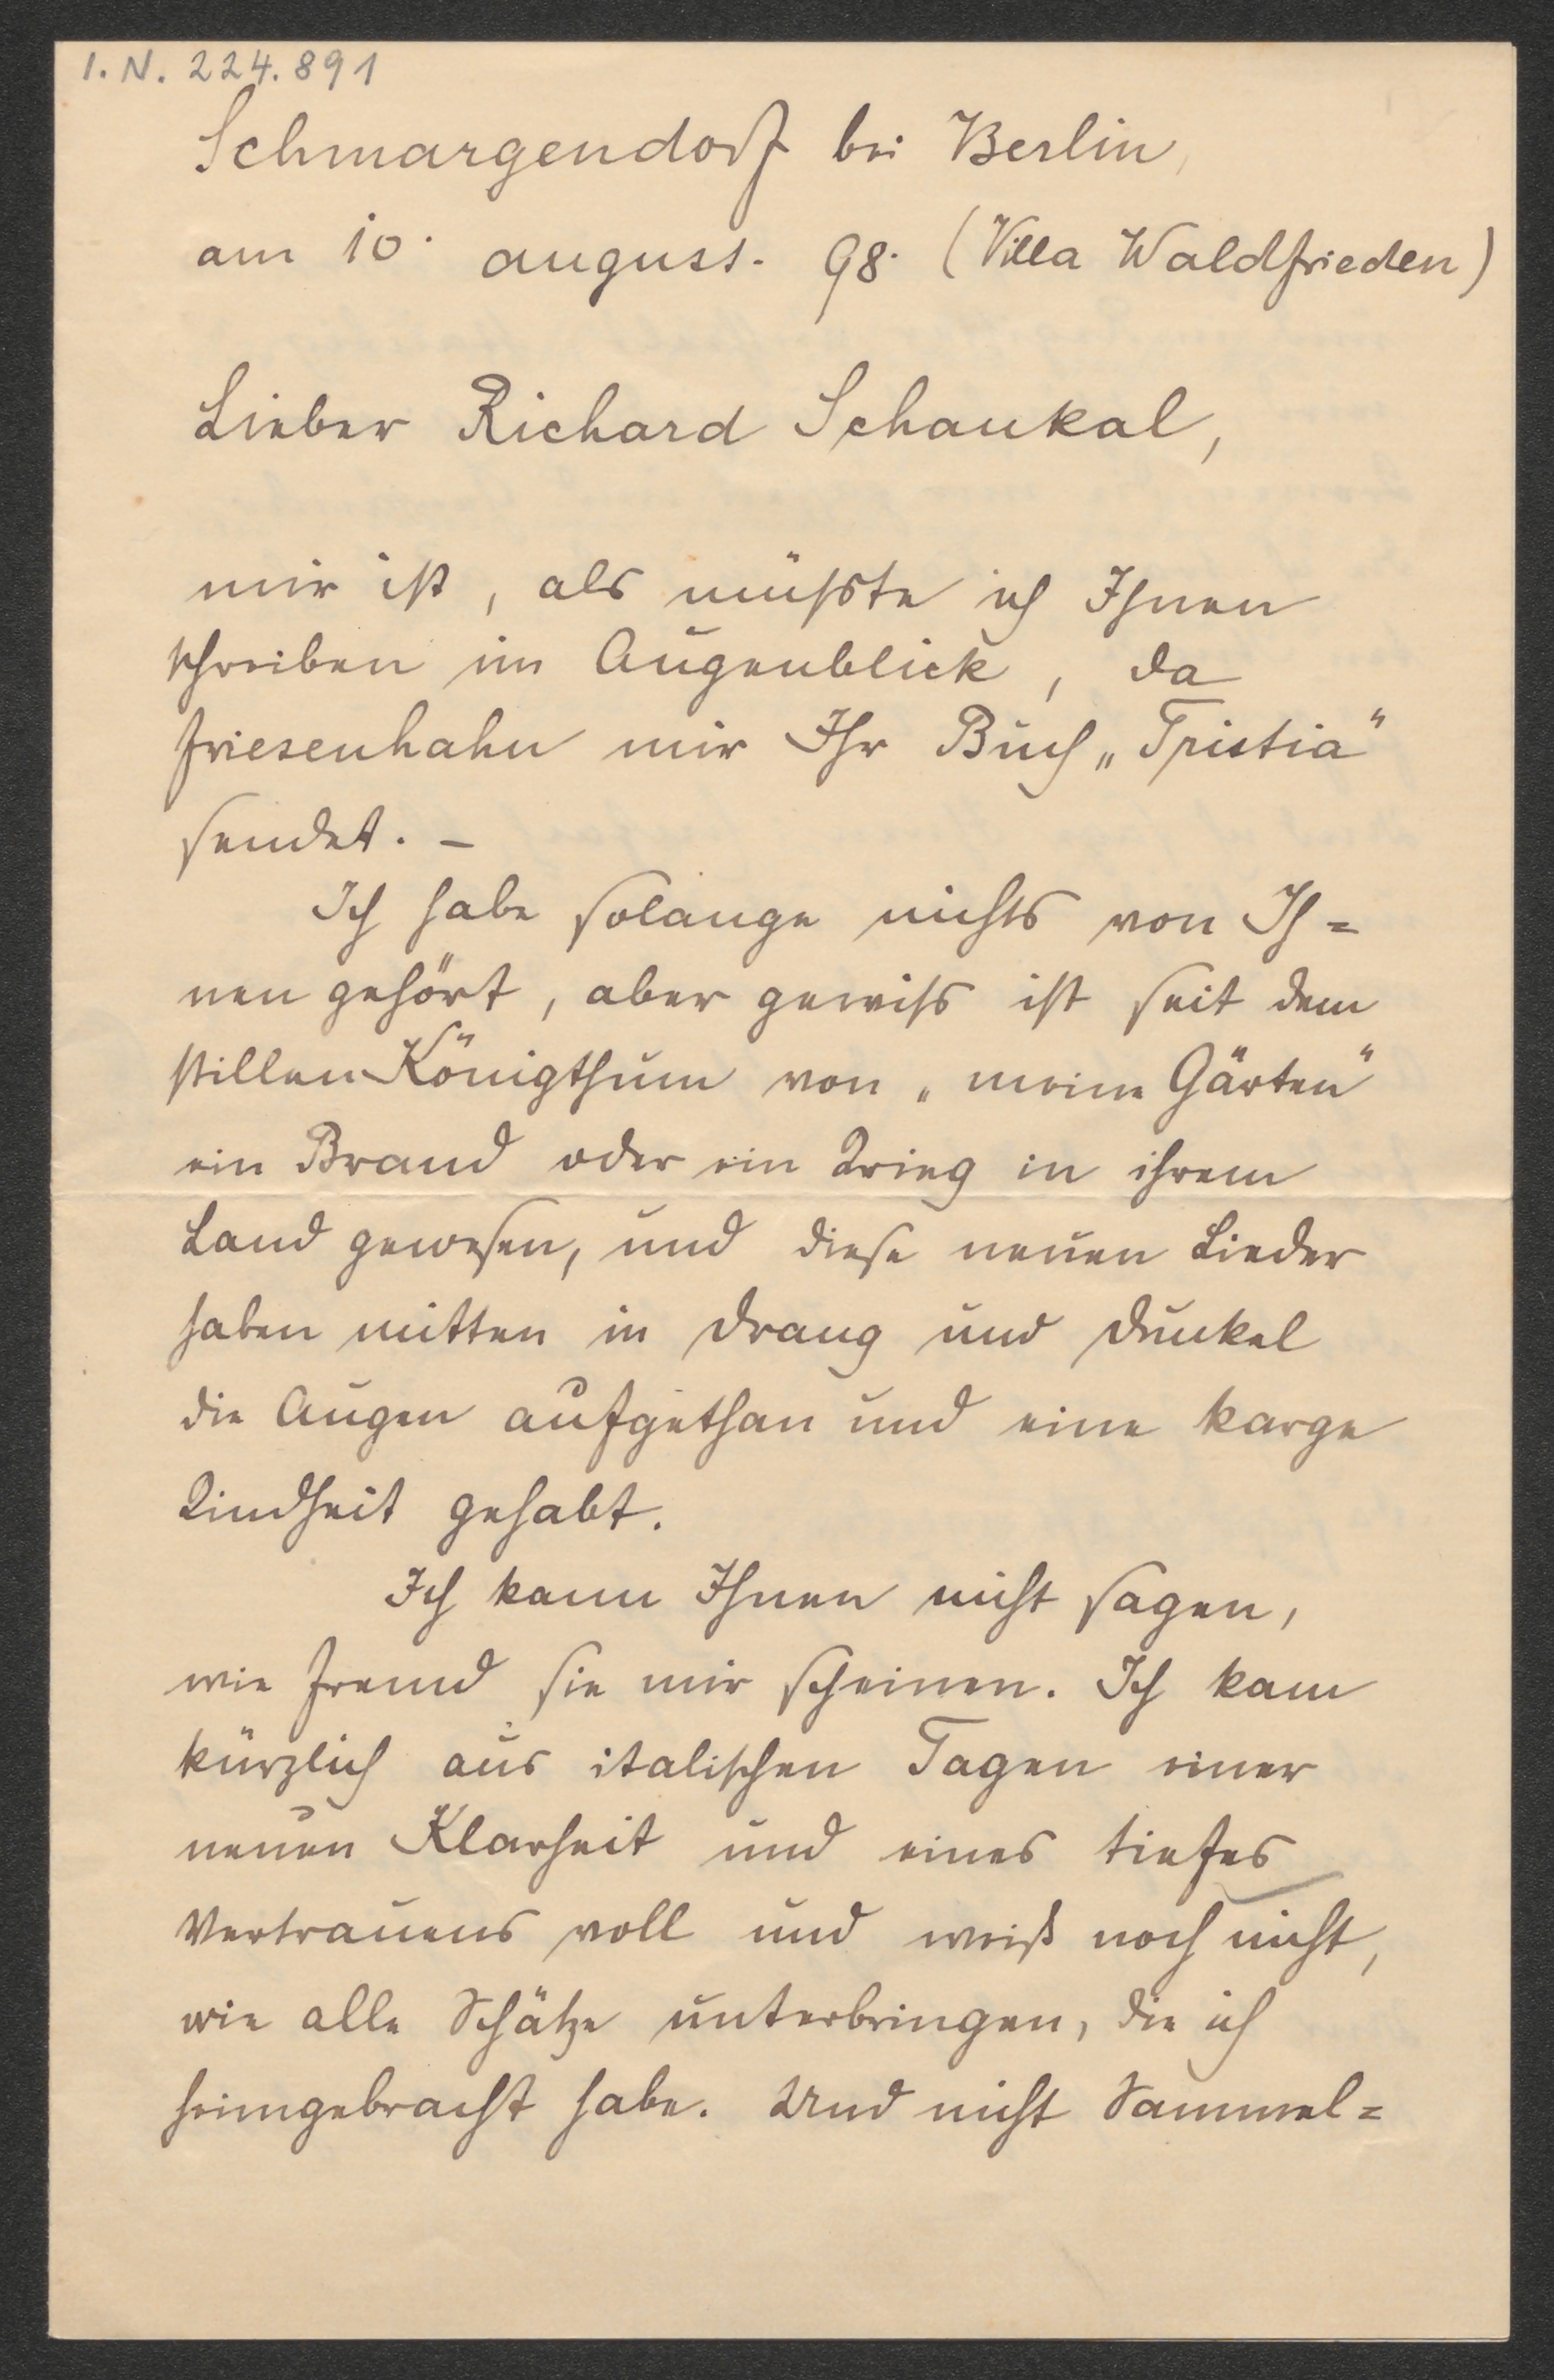 I. N. 224.891
Schmargendorf bei Berlin,
am 10. august. 98. (Villa Waldfrieden)
Lieber Richard Schaukal,
mir ist, als müsste ich Ihnen
schreiben im Augenblick, da
Friesenhahn mir Ihr Buch „Tristia"
sendet. –
Ich habe solange nichts von Ih=
nen gehört, aber gewiss ist seit dem
stillen Königthum von „meine Gärten"
ein Brand oder ein Krieg in ihrem
Land gewesen, und diese neuen Lieder
haben mitten in Drang und Dunkel
die Augen aufgethan und eine karge
Kindheit gehabt.
Ich kann Ihnen nicht sagen,
wie fremd sie mir scheinen. Ich kam
kürzlich aus italischen Tagen einer
neuen Klarheit und eines tiefes
Vertrauens voll und weiß noch nicht,
wie alle Schätze unterbringen, die ich
heimgebracht habe. Und nicht Sammel=